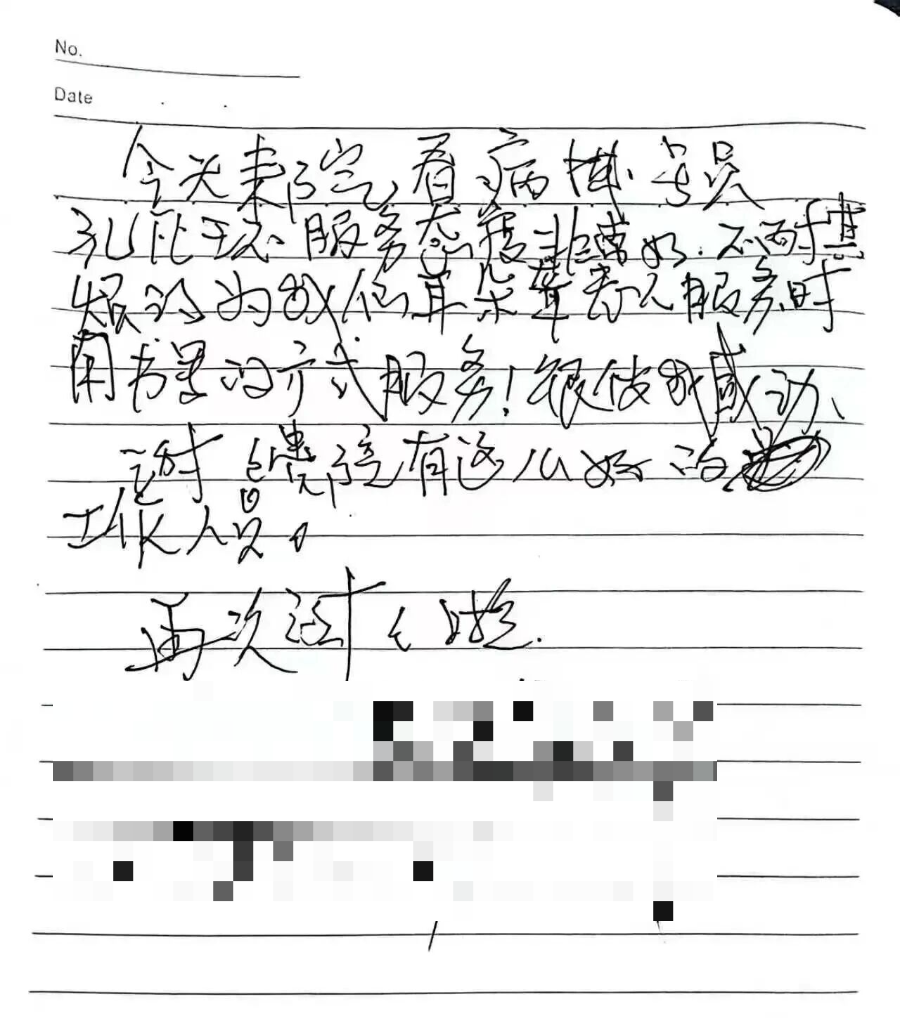 No.
Date
今天来院看病挂号员
服务态度非常好.不耐其
烦的为我们耳朵聋老人服务时
用书写的方式服务!很使我感动、
谢谢贵院有这么好的
工作人员。
再次谢谢.